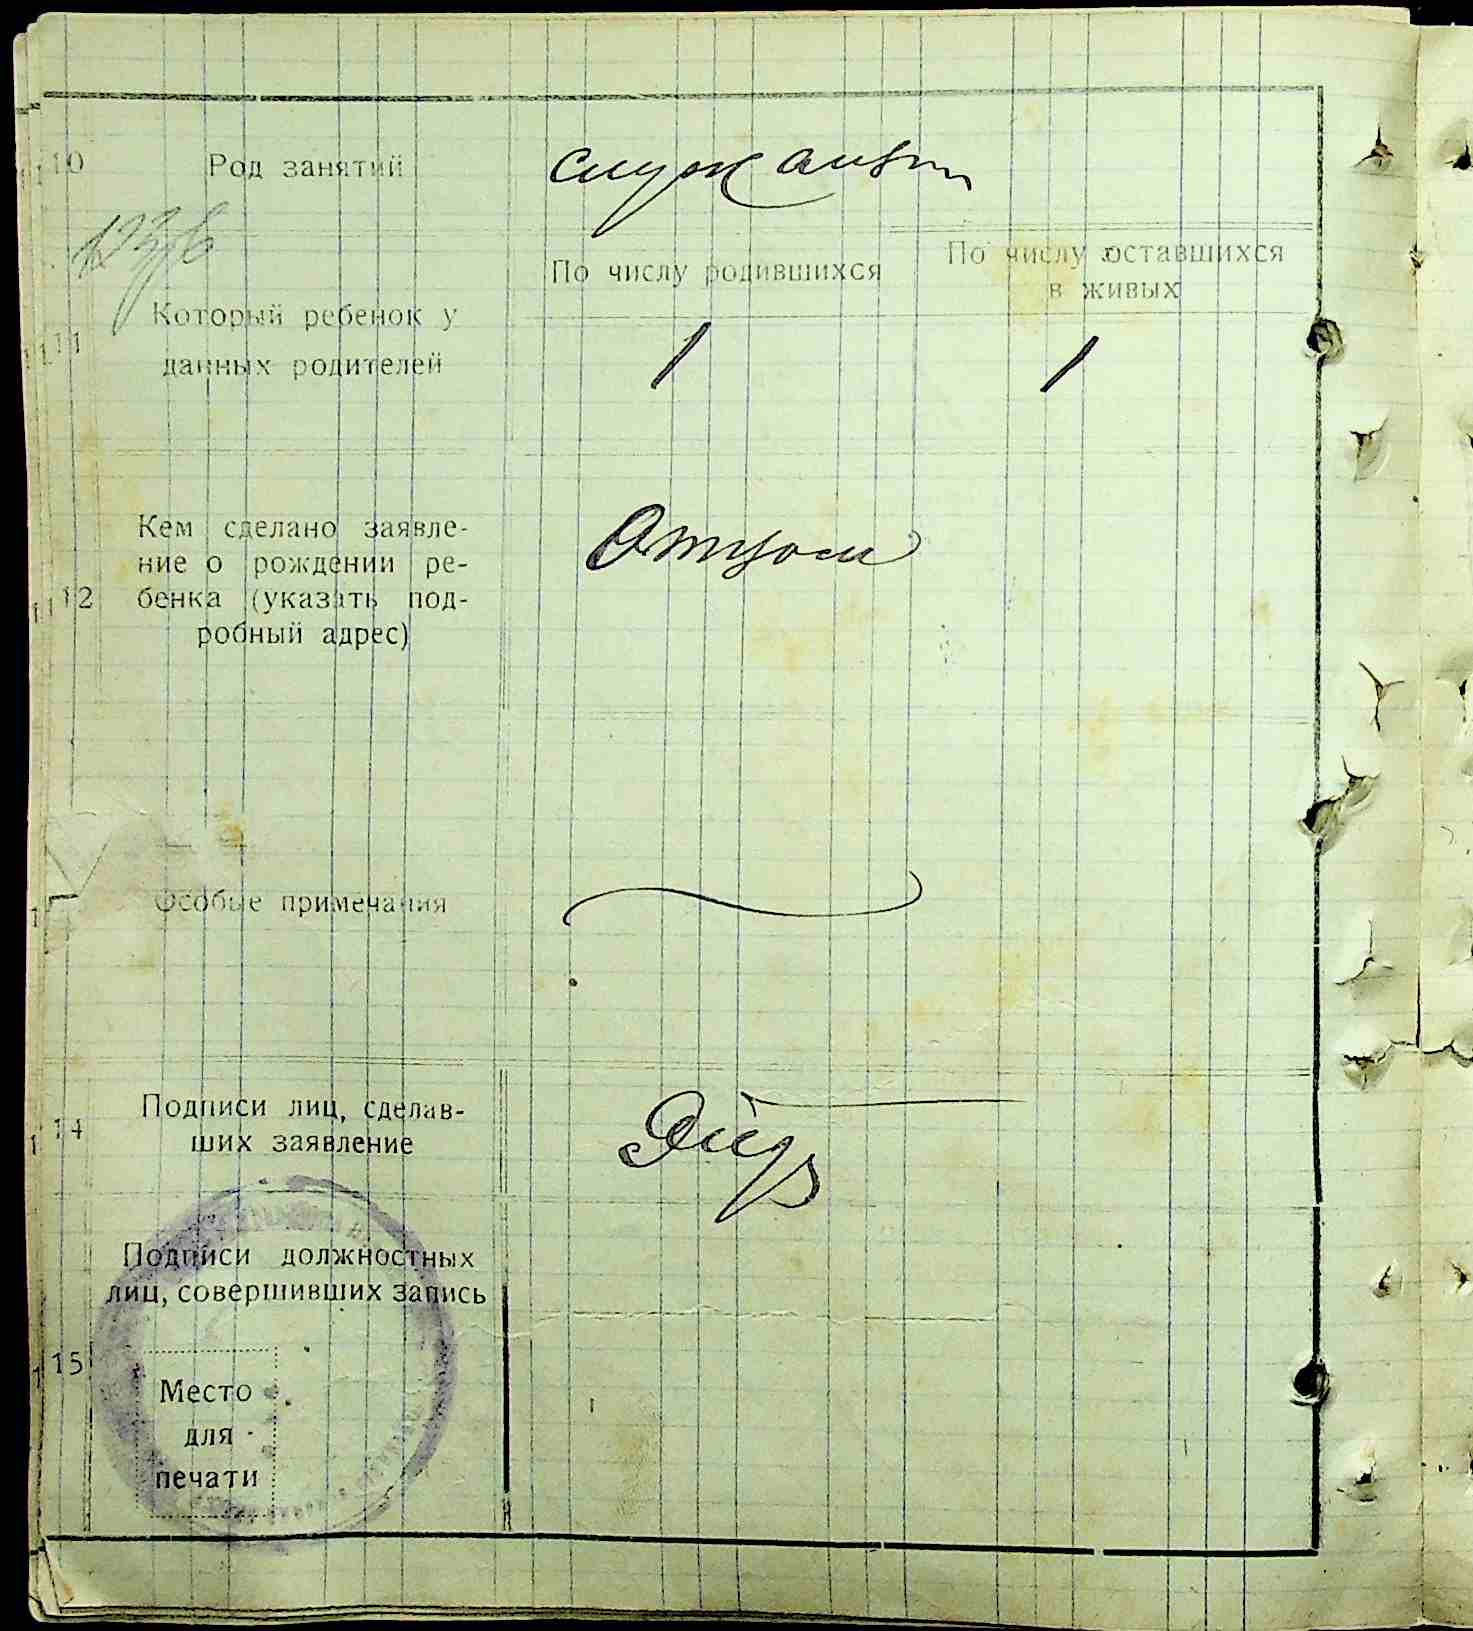 10 Род занятий служащ
По числу родившихся
По числу оставшихся
в живых
Который ребенок у
11 данных родителей 1 1
Кем сделано заявле-
ние о рождении ре-
12 бенка (указать под-
робный адрес)
Отцом
Особые примечания
14 Подписи лиц, сделав-
ших заявление
Подписи должностных
лиц, совершивших запись
15
Место
для
печати